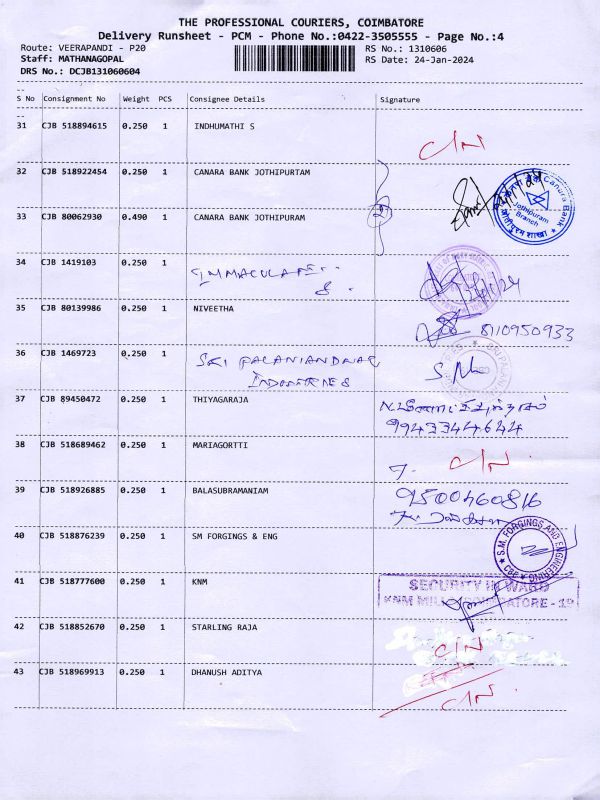 THE PROFESSIONAL COURIERS, COIMBATORE
Delivery Runsheet - PCM - Phone No.:0422-3505555 - Page No.:4
Route: VEERAPANDI - P20 RS No.: 1310606
Staff: MATHANAGOPAL RS Date: 24-Jan-2024
DRS No.: DCJB131060604
S No Consignment No Weight PCS Consignee Details Signature
31 CJB 518894615 0.250 1 INDHUMATHI S C/N
32 CJB 518922454 0.250 1 CANARA BANK JOTHIPURTAM
Canara Bank Jothipuram Branch
33 CJB 80062930 0.490 1 CANARA BANK JOTHIPURAM
34 CJB 1419103 0.250 1 IMMACULATE
35 CJB 80139986 0.250 1 NIVEETHA 8110950933
36 CJB 1469723 0.250 1 SRI PALANIANDAVAR
INDUSTRIES
37 CJB 89450472 0.250 1 THIYAGARAJA
9943344644
38 CJB 518689462 0.250 1 MARIAGORTTI C/N
39 CJB 518926885 0.250 1 BALASUBRAMANIAM 9500460816
40 CJB 518876239 0.250 1 SM FORGINGS & ENG
S.M. FORGINGS AND ENGINEERING CBE
41 CJB 518777600 0.250 1 KNM
SECURITY IN WARD
KNM MILL COIMBATORE - 19
42 CJB 518852670 0.250 1 STARLING RAJA C/N
43 CJB 518969913 0.250 1 DHANUSH ADITYA C/N